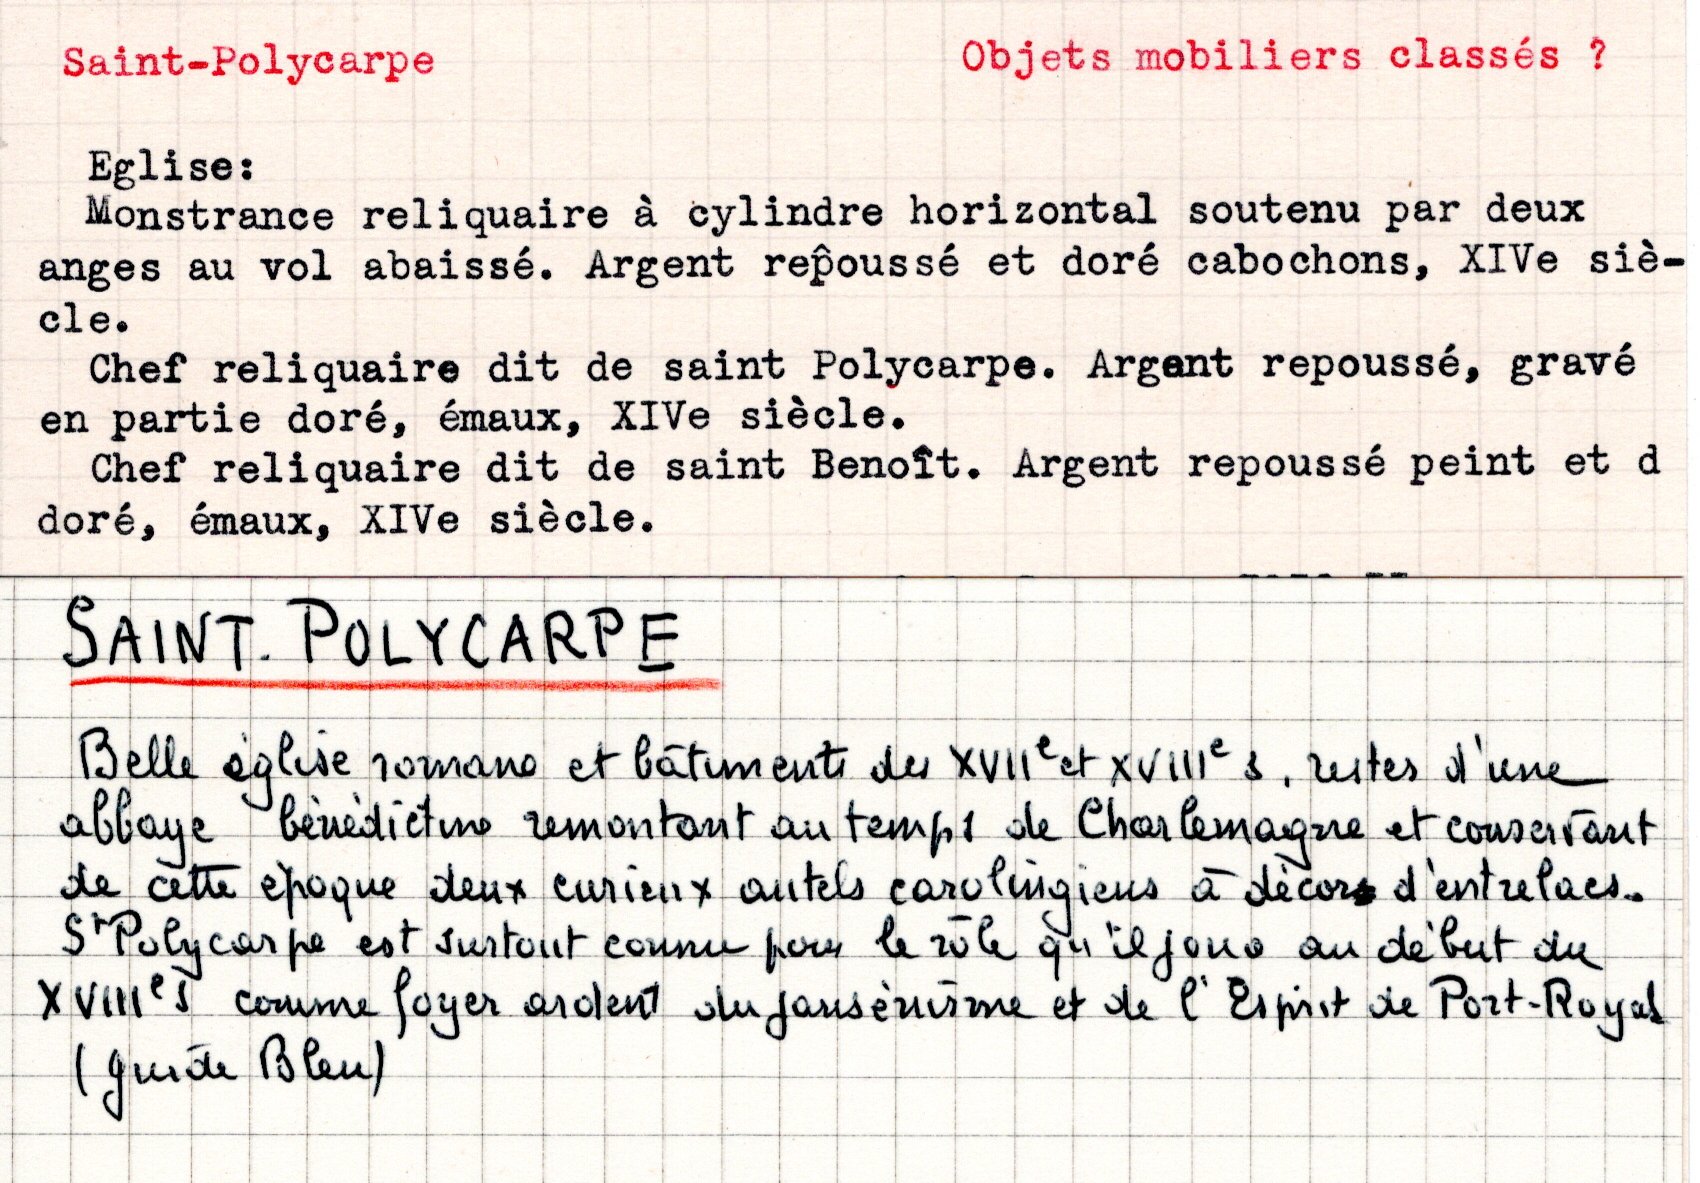 Saint-Polycarpe Objets mobiliers classés ?
Eglise:
Monstrance reliquaire à cylindre horizontal soutenu par deux
anges au vol abaissé. Argent rep̂oussé et doré cabochons, XIVe siè-
cle.
Chef reliquaire dit de saint Polycarpe. Argent repoussé, gravé
en partie doré, émaux, XIVe siècle.
Chef reliquaire dit de saint Benoît. Argent repoussé peint et d
doré, émaux, XIVe siècle.
SAINT. POLYCARPE
Belle église romane et bâtiments des XVIIe et XVIIIe s, restes d'une
abbaye bénédictine remontant au temps de Charlemagne et conservant
de cette époque deux curieux autels carolingiens à décors d'entrelacs.
St Polycarpe est surtout connu pour le rôle qu'il joua au début du
XVIIIe s comme foyer ardent du jansénisme et de l'Esprit de Port-Royal
(guide Bleu)